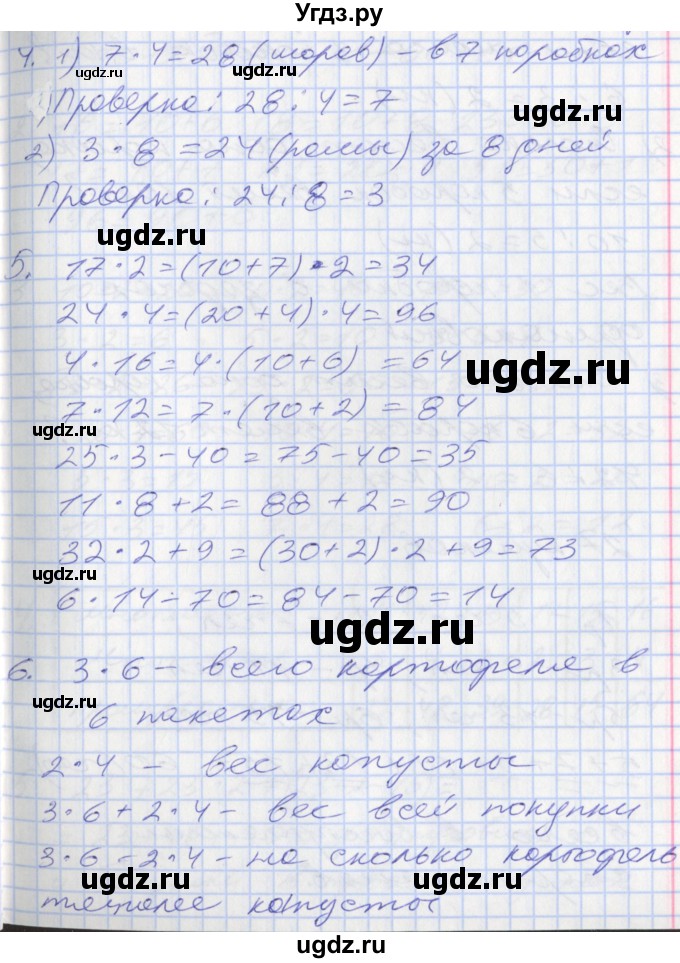 Угдз.ру
4. 1) 7·4=28 (шаров) – в 7 коробках
Проверка: 28:4=7
2) 3·8=24 (рамы) за 8 дней
Проверка: 24:8=3
5. 17·2=(10+7)·2=34
24·4=(20+4)·4=96
4·16=4·(10+6)=64
7·12=7·(10+2)=84
25·3-40=75-40=35
11·8+2=88+2=90
32·2+9=(30+2)·2+9=73
6·14-70=84-70=14
6. 3·6 – всего картофеля в
6 пакетах
2·4 – вес капусты
3·6+2·4 – вес всей покупки
3·6-2·4 – на сколько картофель
тяжелее капусты
ugdz.ru
ugdz.ru
ugdz.ru
ugdz.ru
ugdz.ru
ugdz.ru
ugdz.ru
ugdz.ru
ugdz.ru
ugdz.ru
ugdz.ru
ugdz.ru
ugdz.ru